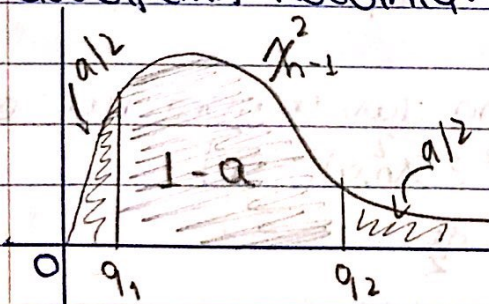 a/2
χ²n-1
1-a
a/2
0 q1 q2